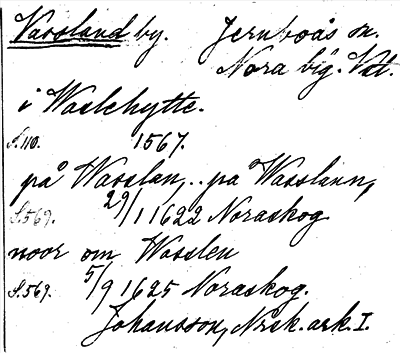 Vassland by. Jernboås sn.
Nora bg. Vstm.
i Waslehytte.
S. 110. 1567.
på Wasslan, .. på Wasslann,
S. 569. 29/1 1622 Noraskog
noor om Wasslen
S. 569. 5/9 1625 Noraskog.
Johansson, Norsk. ark. I.